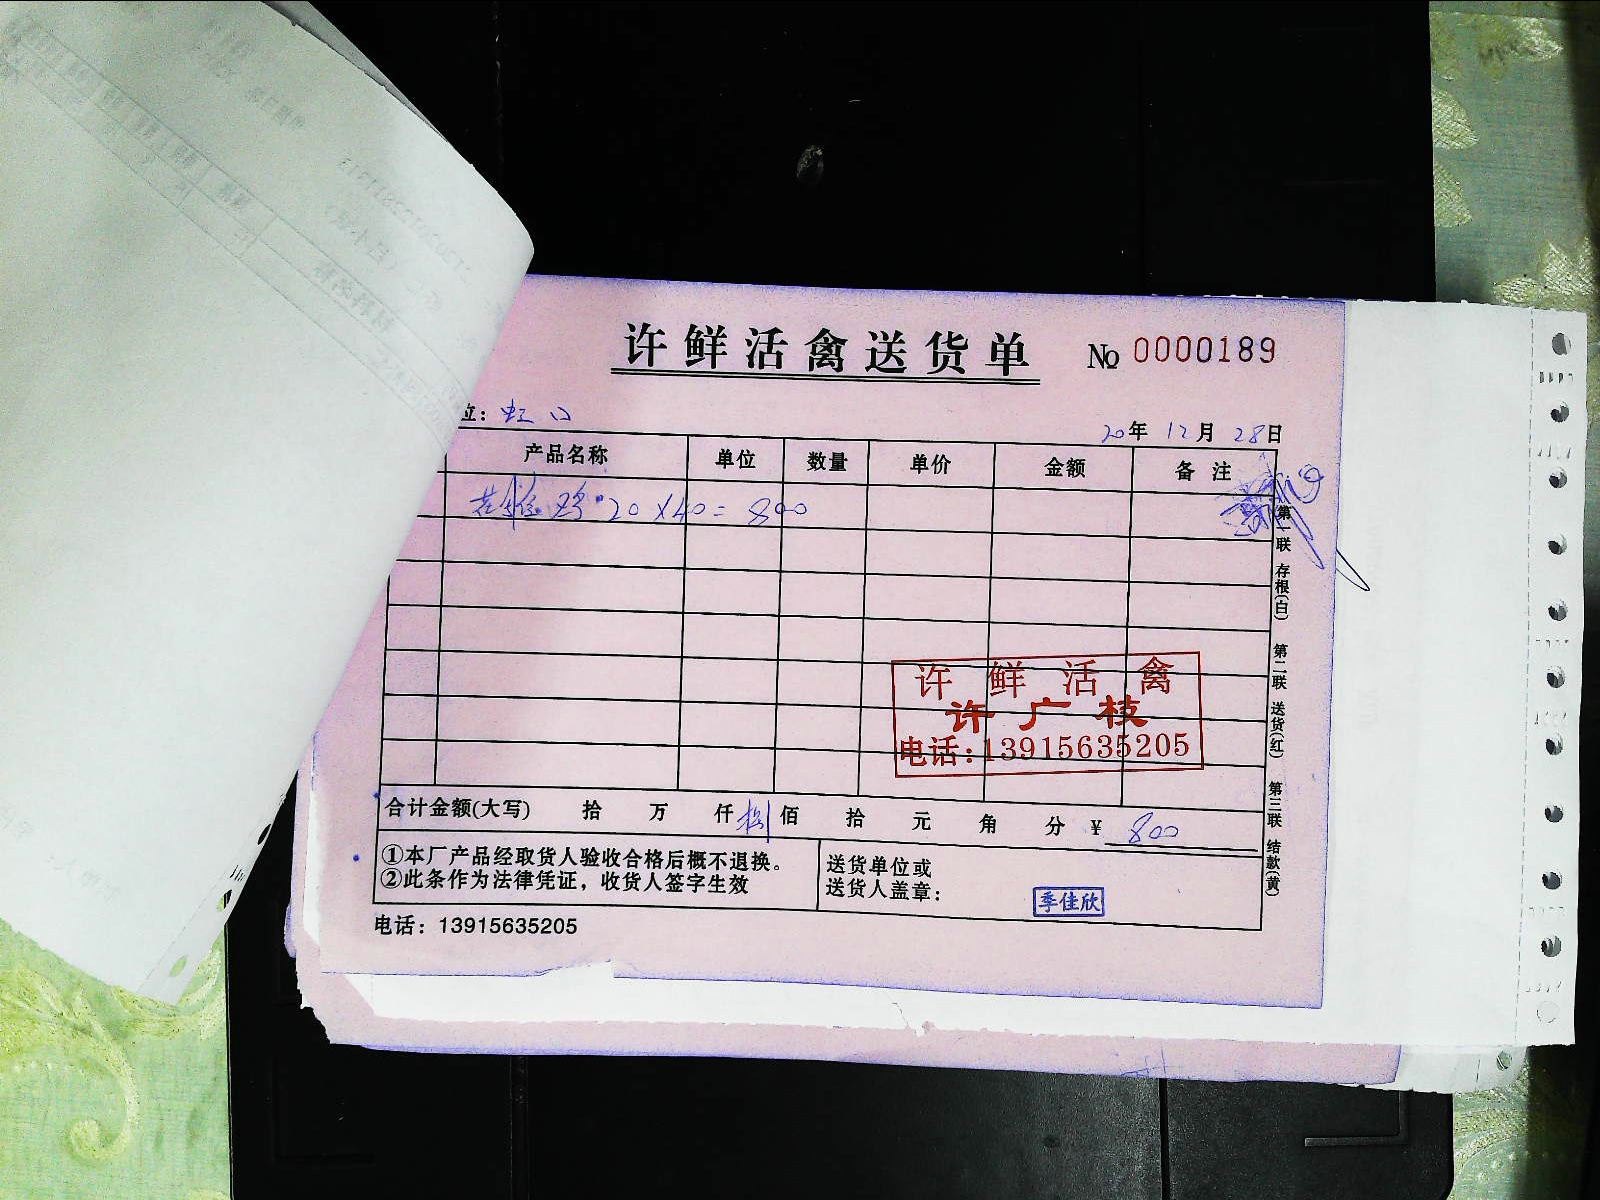 许鲜活禽送货单
№ 0000189
位: 虹口
20年 12月 28日
产品名称 单位 数量 单价 金额 备注
20×40=800
第一联 存根(白) 第二联 送货(红) 第三联 结款(黄)
许鲜活禽
许广枝
电话:13915635205
合计金额(大写) 拾 万 仟 捌佰 拾 元 角 分 ¥ 800
①本厂产品经取货人验收合格后概不退换。
②此条作为法律凭证，收货人签字生效
送货单位或
送货人盖章:
季佳欣
电话: 13915635205